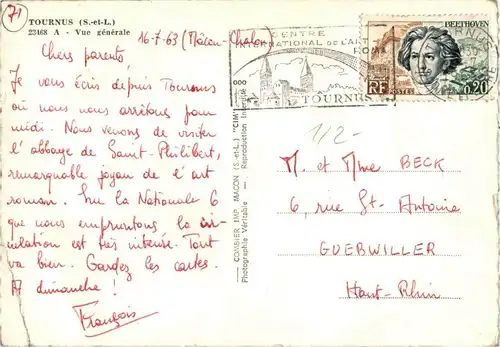 71
TOURNUS (S.-et-L.)
23468 A - Vue générale
16-7-63 (Mâcon-Chalon)
Chers parents,
Je vous écris depuis Tournus
où nous nous arrêtons pour
midi. Nous venons de visiter
l'abbaye de Saint-Philibert,
remarquable joyau de l'art
roman. Sur la Nationale 6
que nous empruntons la cir-
culation est très intense. Tout
va bien. Gardez les cartes.
A dimanche !
François
COMBIER IMP. MACON (S.-et-L.) "CIM"
Photographie Véritable — Reproduction Interdite
CENTRE
INTERNATIONAL DE L'ART
ROMAN
TOURNUS
BEETHOVEN
RF
POSTES
0,20
1/2-
M. et Mme BECK
6, rue St-Antoine
GUEBWILLER
Haut-Rhin